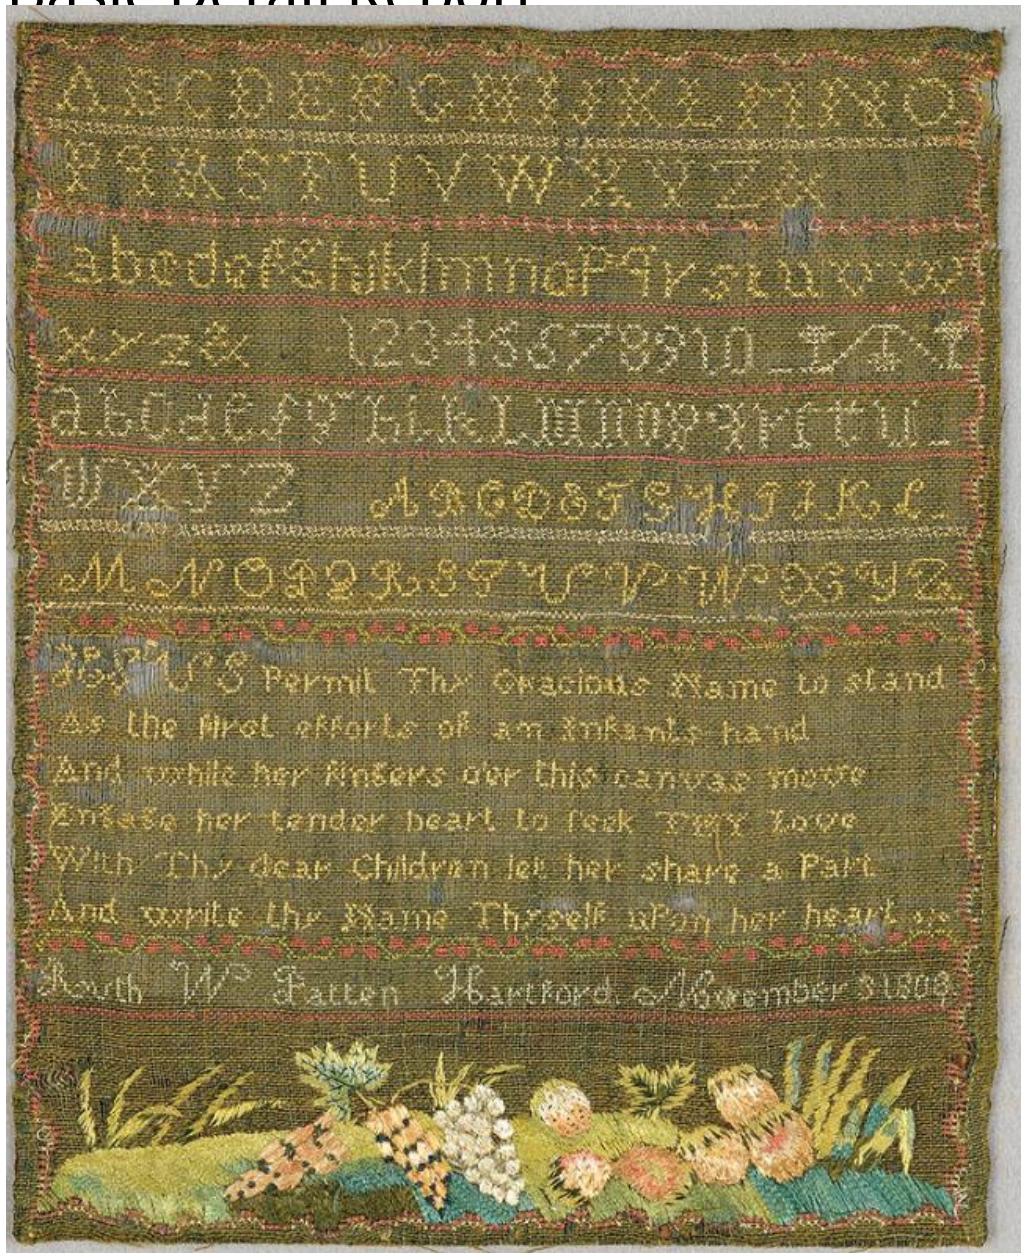 Basic Detail Report
A B C D E F G H I J K L M N O
P Q R S T U V W X Y Z &
a b c d e f g h i j k l m n o p q r s t u v w
x y z & 1 2 3 4 5 6 7 8 9 10
a b c d e f g h i k l m n o p q r ſ t u
w x y z A B C D E F G H I J K L
M N O P Q R S T U V W X Y Z
JESUS Permit Thy Gracious Name to stand
As the first efforts of an Infants hand
And while her fingers o'er this canvas move
Engage her tender heart to ſeek THY Love
With Thy dear Children let her share a Part
And write thy Name Thyself upon her heart
Ruth W Patten Hartford November 3 1808